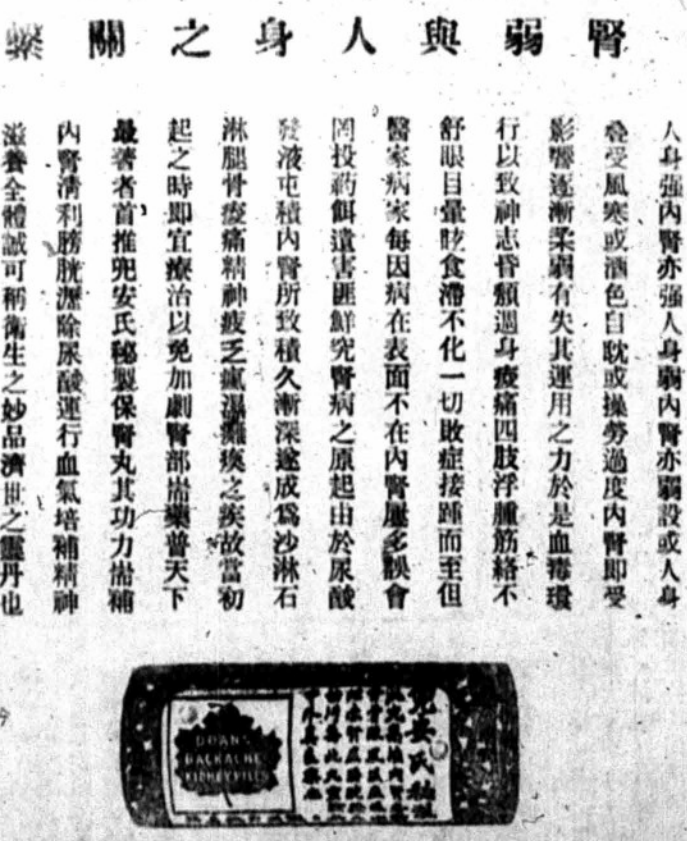 腎弱與人身之關係
人身强內腎亦强人身弱內腎亦弱設或人身
受風寒或酒色自耽或操勞過度內腎即受
影響逐漸柔弱有失其運用之力於是血毒環
行以致神志昏頹週身痠痛四肢浮腫筋絡不
舒眼目暈眩食滯不化一切敗症接踵而至但
醫家病家每因病在表面不在內腎屢多誤會
罔投藥餌遺害匪鮮究腎病之原起由於尿酸
發液屯積內腎所致積久漸深遂成為沙淋石
淋腿骨痠痛精神疲乏瘋濕癱瘓之疾故當初
起之時即宜療治以免加劇腎部耑藥普天下
最著者首推兜安氏秘製保腎丸其功力耑補
內腎清利膀胱瀝除尿酸運行血氣培補精神
滋養全體誠可稱衛生之妙品濟世之靈丹也
DOAN'S
BACKACHE
KIDNEY PILLS
兜安氏秘製